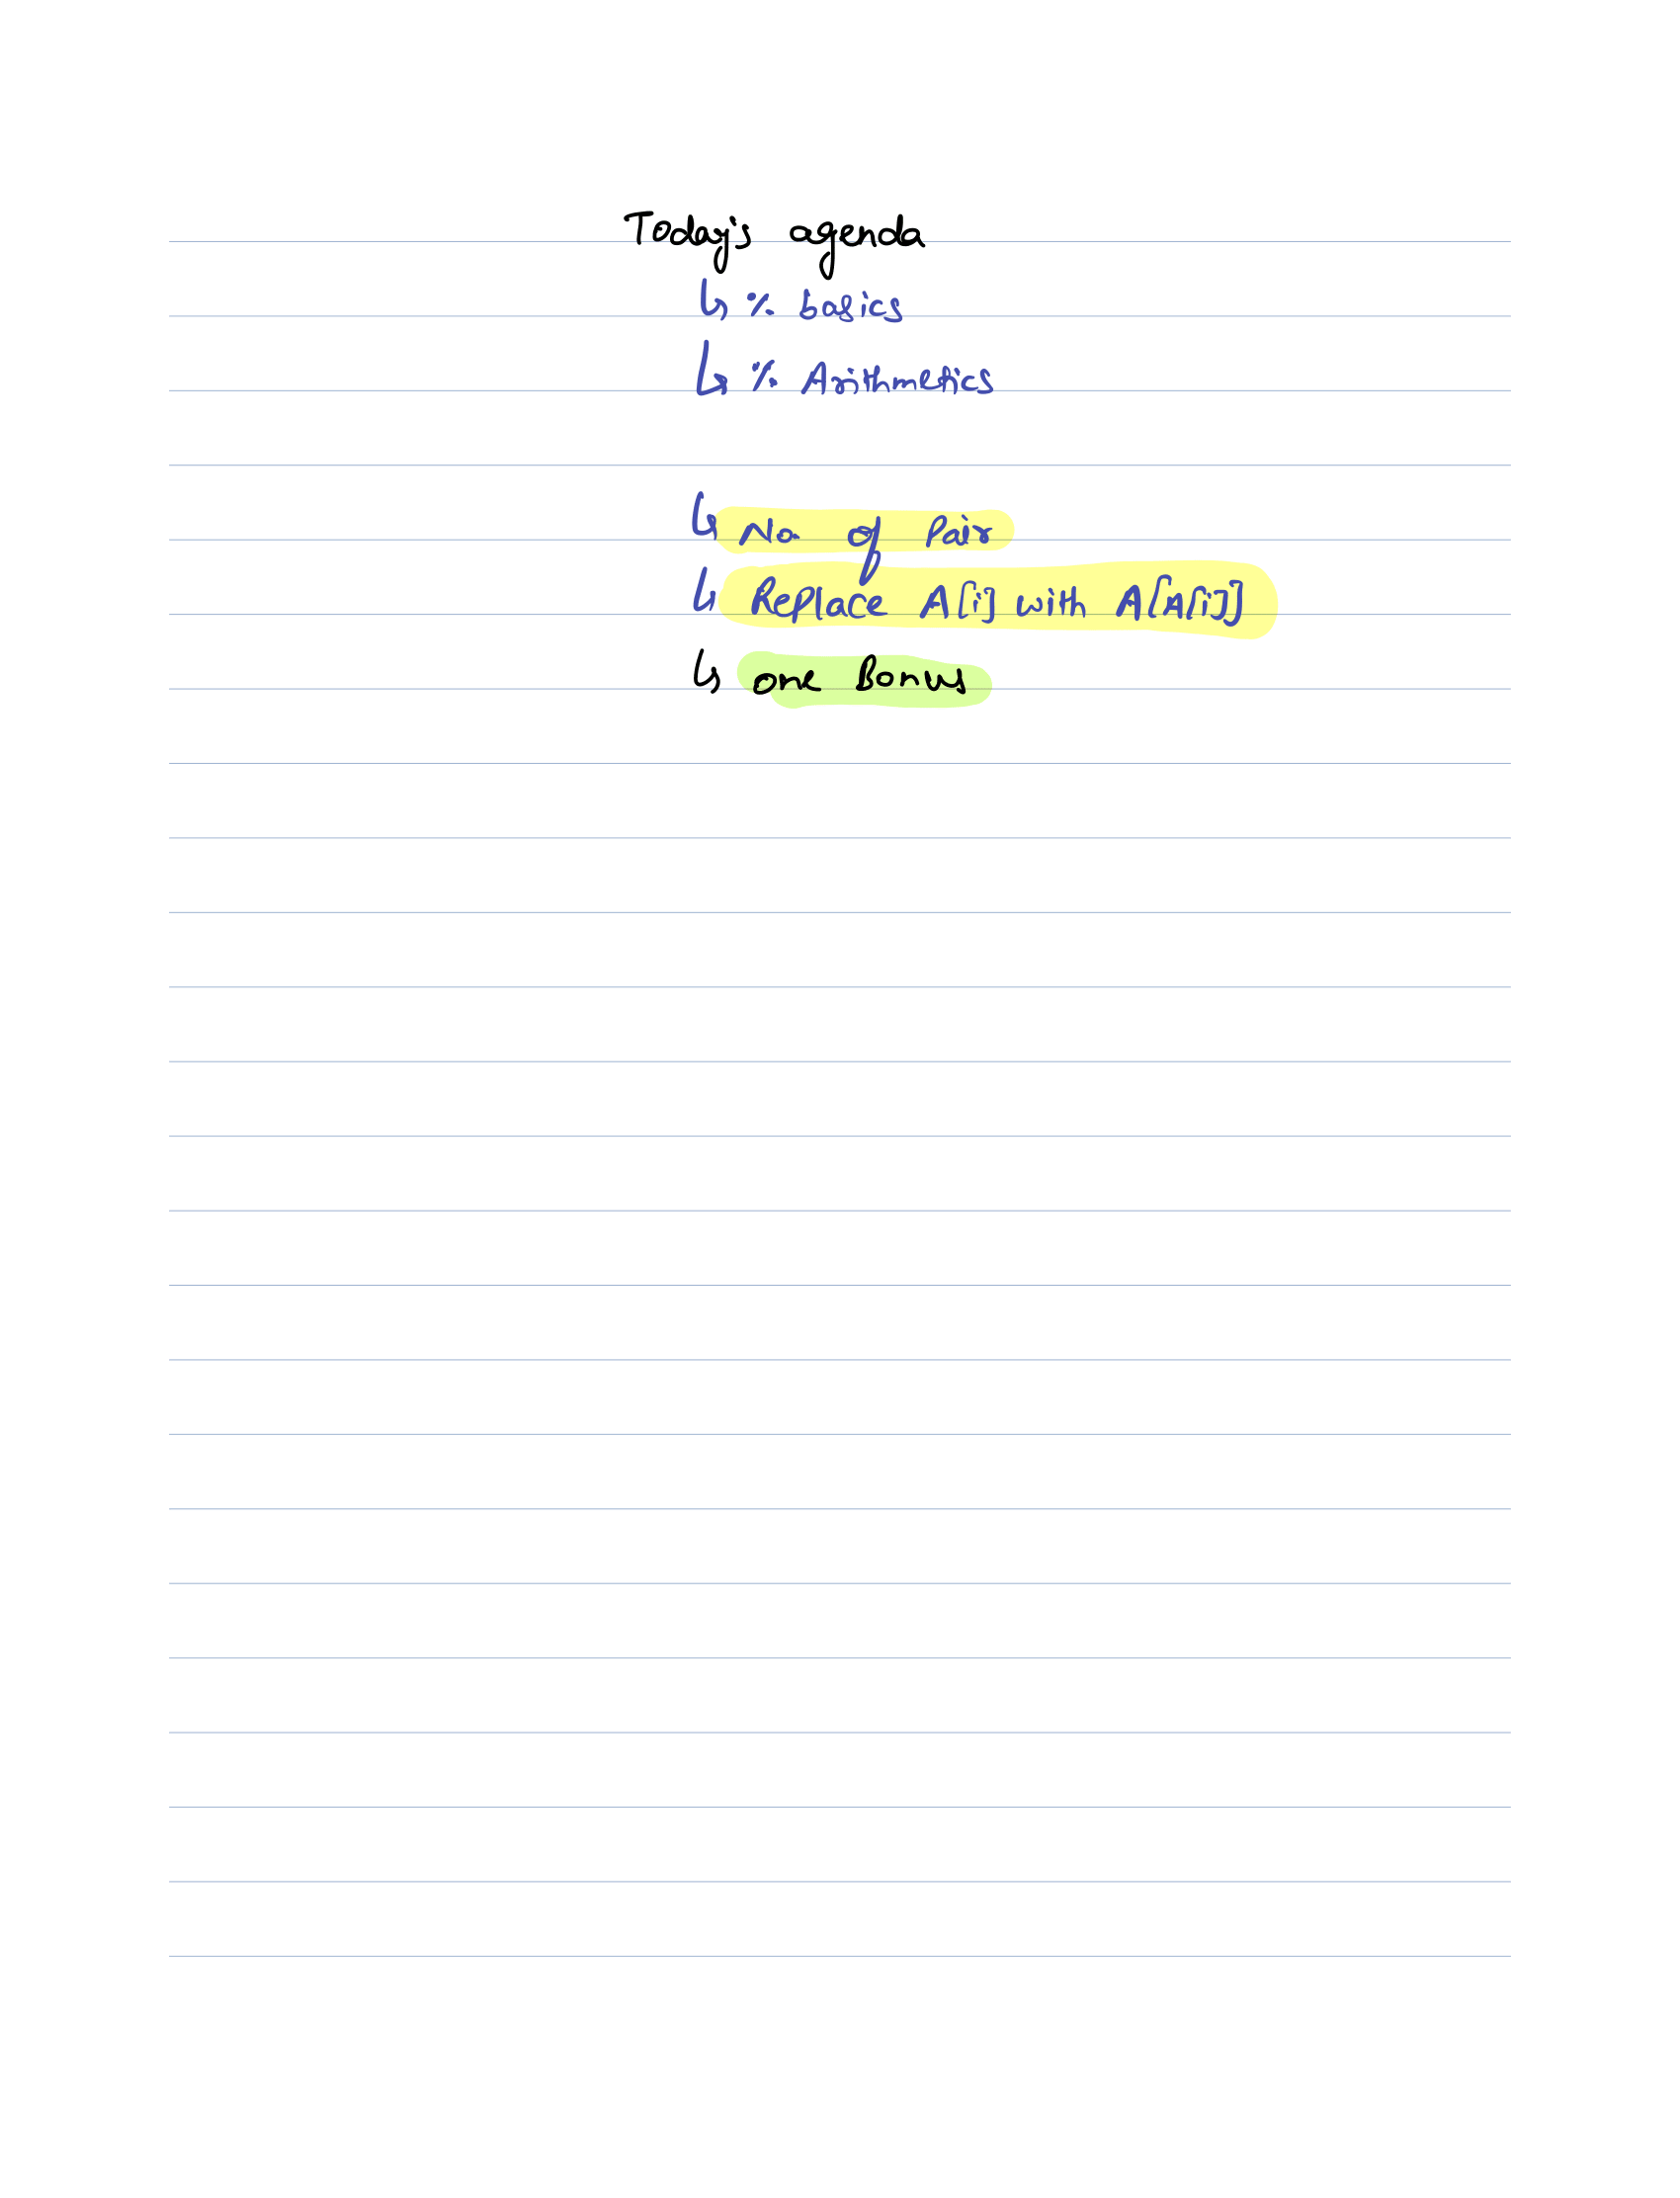 Today's agenda
↳ % basics
↳ % Arithmetics
↳ No. of Pair
↳ Replace A[i] with A[A[i]]
↳ one Bonus